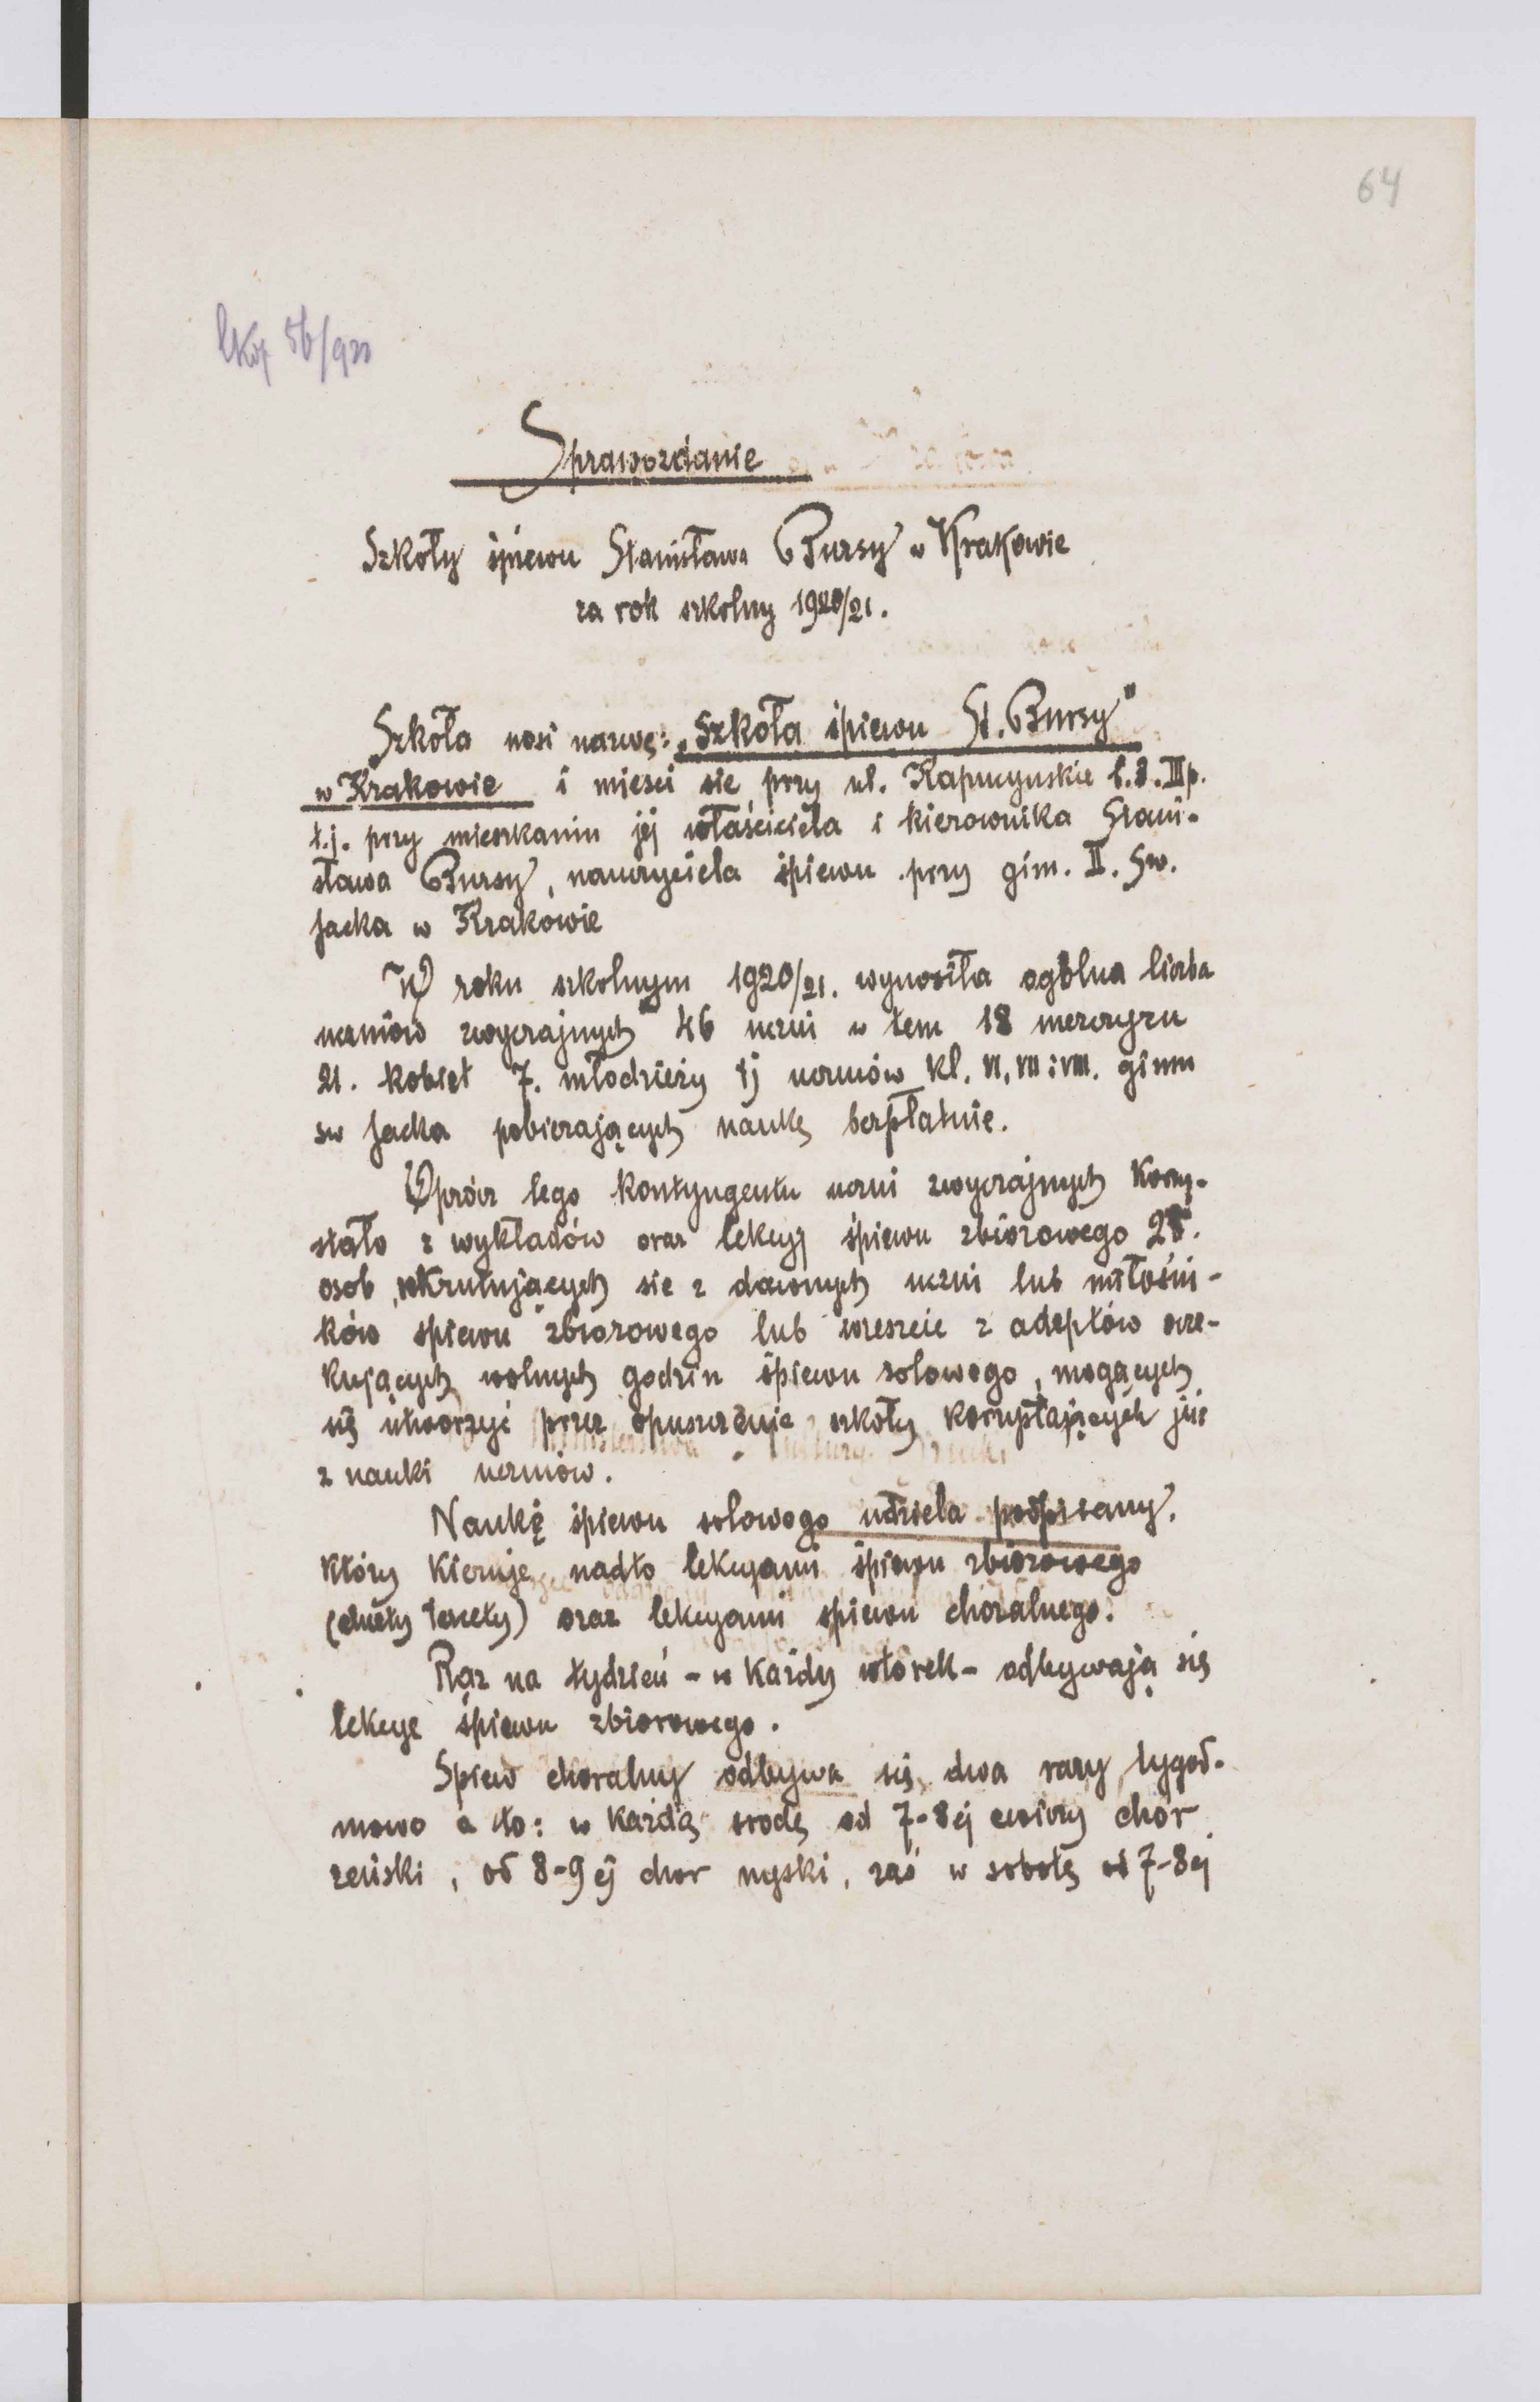 64
56/920
Sprawozdanie
Szkoły śpiewu Stanisława Bursy w Krakowie
za rok szkolny 1920/21.
Szkoła nosi nazwę: „Szkoła śpiewu St. Bursy"
w Krakowie i mieści sie przy ul. Kapucyńskie l. 3. III p.
t.j. przy mieszkaniu jej właściciela i kierownika Stani-
sława Bursy, nauczyciela śpiewu przy gim. II. Św.
Jacka w Krakowie
W roku szkolnym 1920/21. wynosiła ogólna liczba
uczniów zwyczajnych 46 uczni w tem 18 mezczyzn
21. kobiet 7. młodzieży tj uczniów kl. VI, VII i VIII. gimn
sw Jacka pobierających naukę bezpłatnie.
Oprócz tego kontyngentu uczni zwyczajnych korzy-
stało z wykładów oraz lekcyj śpiewu zbiorowego 28.
osób, rekrutujących sie z dawnych uczni lub miłośni-
ków śpiewu zbiorowego lub wreszcie z adeptów ocze-
kujących wolnych godzin śpiewu solowego, mogących
się utworzyć przez opuszczenie szkoły korzystających już
z nauki uczniów.
Naukę śpiewu solowego udziela podpisany,
który kieruje nadto lekcyami śpiewu zbiorowego
(duety tercety) oraz lekcyami śpiewu choralnego.
Raz na tydzień - w każdy wtorek - odbywają się
lekcye śpiewu zbiorowego.
Spiew choralny odbywa się dwa razy tygod-
niowo a to: w każdą srodę od 7-8ej cwiczy chór
zeński, od 8-9ej chor męski, zaś w sobotę od 7-8ej